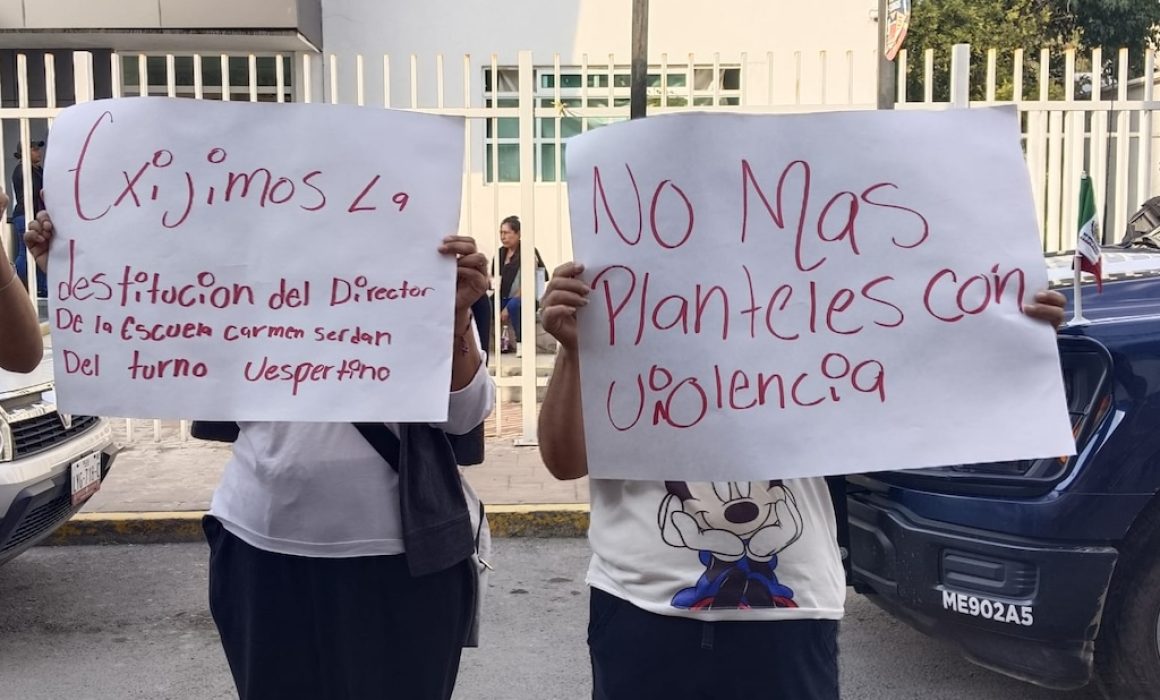 Exijimos La
destitucion del Director
De la Escuela carmen serdan
Del turno Vespertino
No Mas
Planteles con
violencia
ME902A5